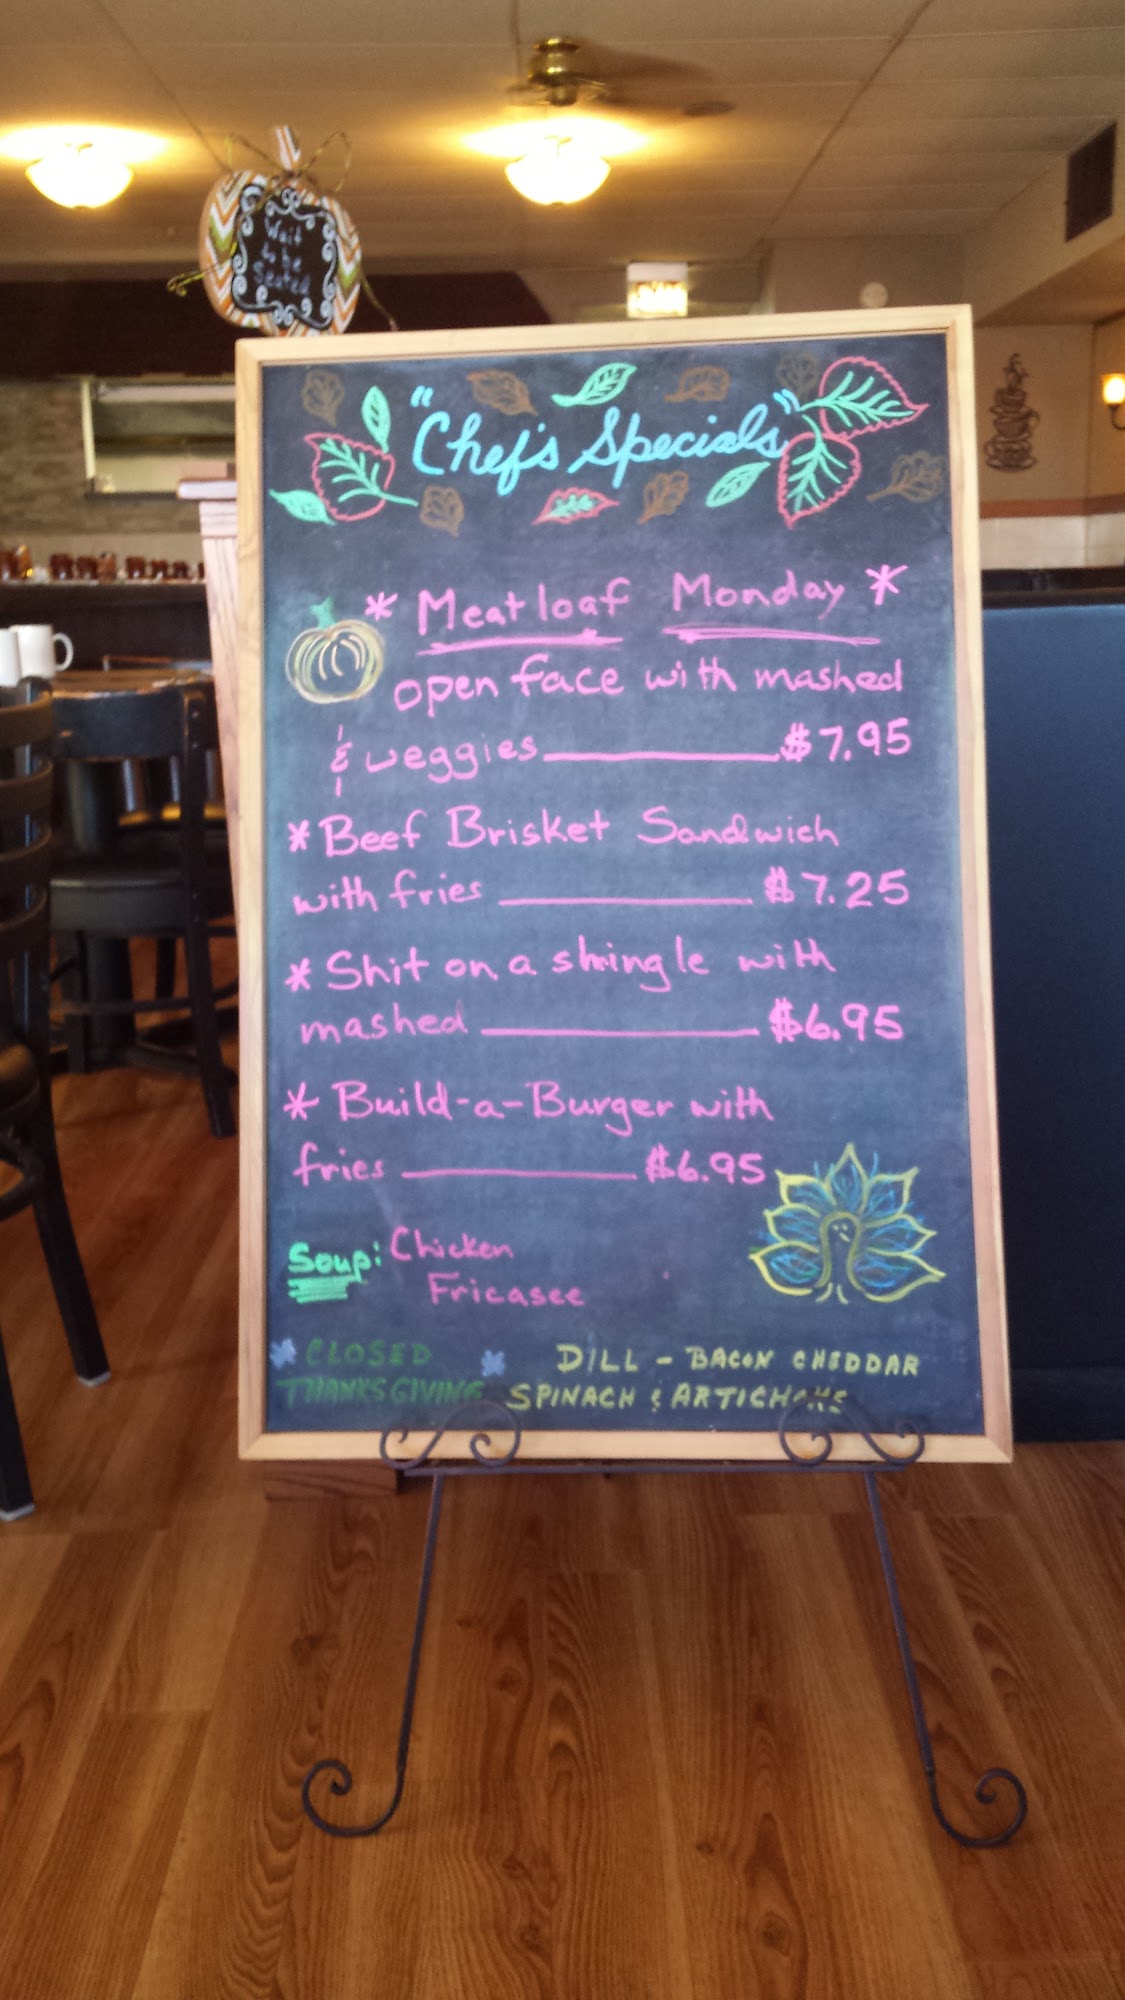 Wait
to be
Seated
"Chef's Specials"
* Meatloaf Monday *
open face with mashed
& veggies $7.95
* Beef Brisket Sandwich
with fries $7.25
* Shit on a shingle with
mashed $6.95
* Build-a-Burger with
fries $6.95
Soup: Chicken
Fricasee
* CLOSED *
THANKSGIVING
DILL - BACON CHEDDAR
SPINACH & ARTICHOKE